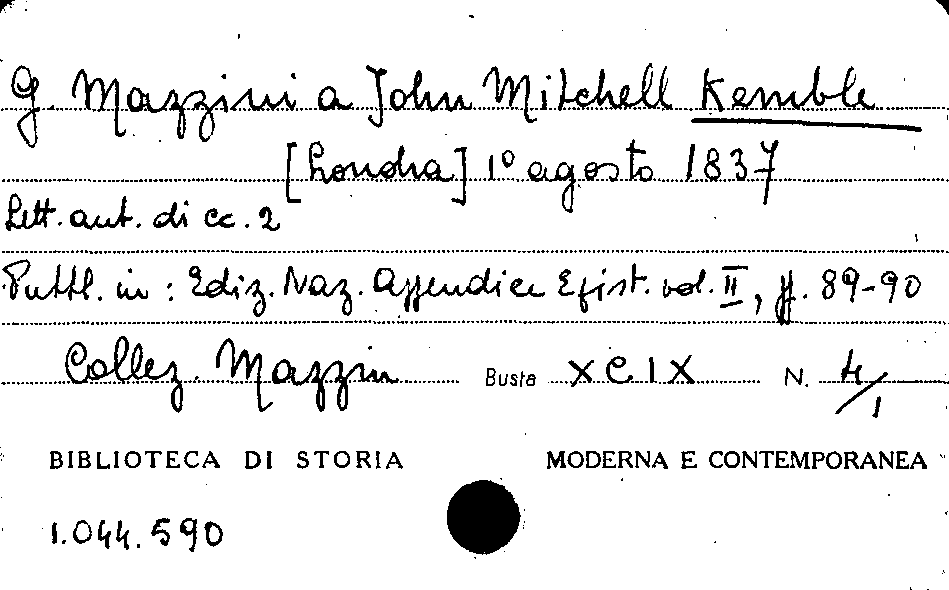 G. Mazzini a John Mitchell Kemble
[Londra] 1º agosto 1837
Lett. aut. di cc. 2
Pubbl. in: Ediz. Naz. Appendice Epist. vol. II, pp. 89-90
Collez. Mazzini Busta XCIX N. 4/1
BIBLIOTECA DI STORIA MODERNA E CONTEMPORANEA
1.044.590